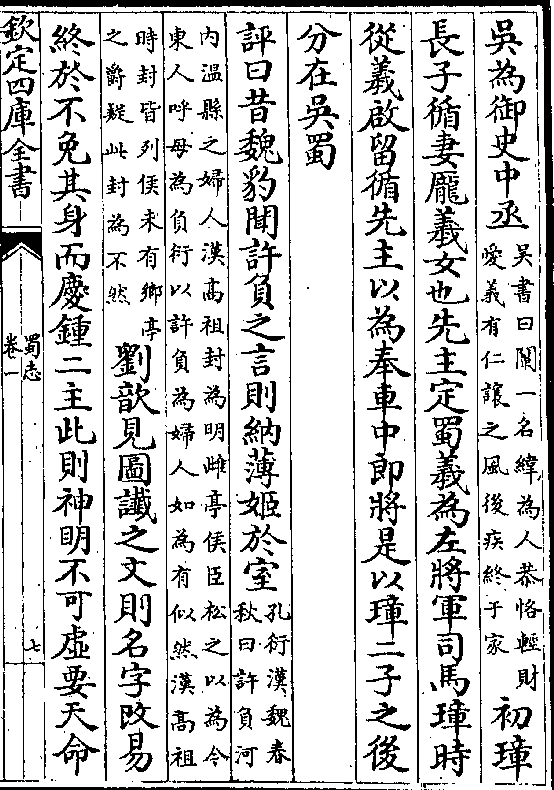 吳為御史中丞
吳書曰闡一名緯為人恭恪輕財
愛義有仁讓之風後疾終于家
初璋
長子循妻龎義女也先主定蜀義為左將軍司馬璋時
從義啟留循先主以為奉車中郎將是以璋二子之後
分在吳蜀
評曰昔魏豹聞許負之言則納薄姬於室
孔衍漢魏春
秋曰許負河
内溫縣之婦人漢高祖封為明雌亭侯臣松之以為今
東人呼母為負衍以許負為婦人如為有似然漢高祖
時封皆列侯未有鄉亭
之爵疑此封為不然
劉歆見圖讖之文則名字改易
終於不免其身而慶鍾二主此則神明不可虛要天命
欽定四庫全書
蜀志
卷一
七